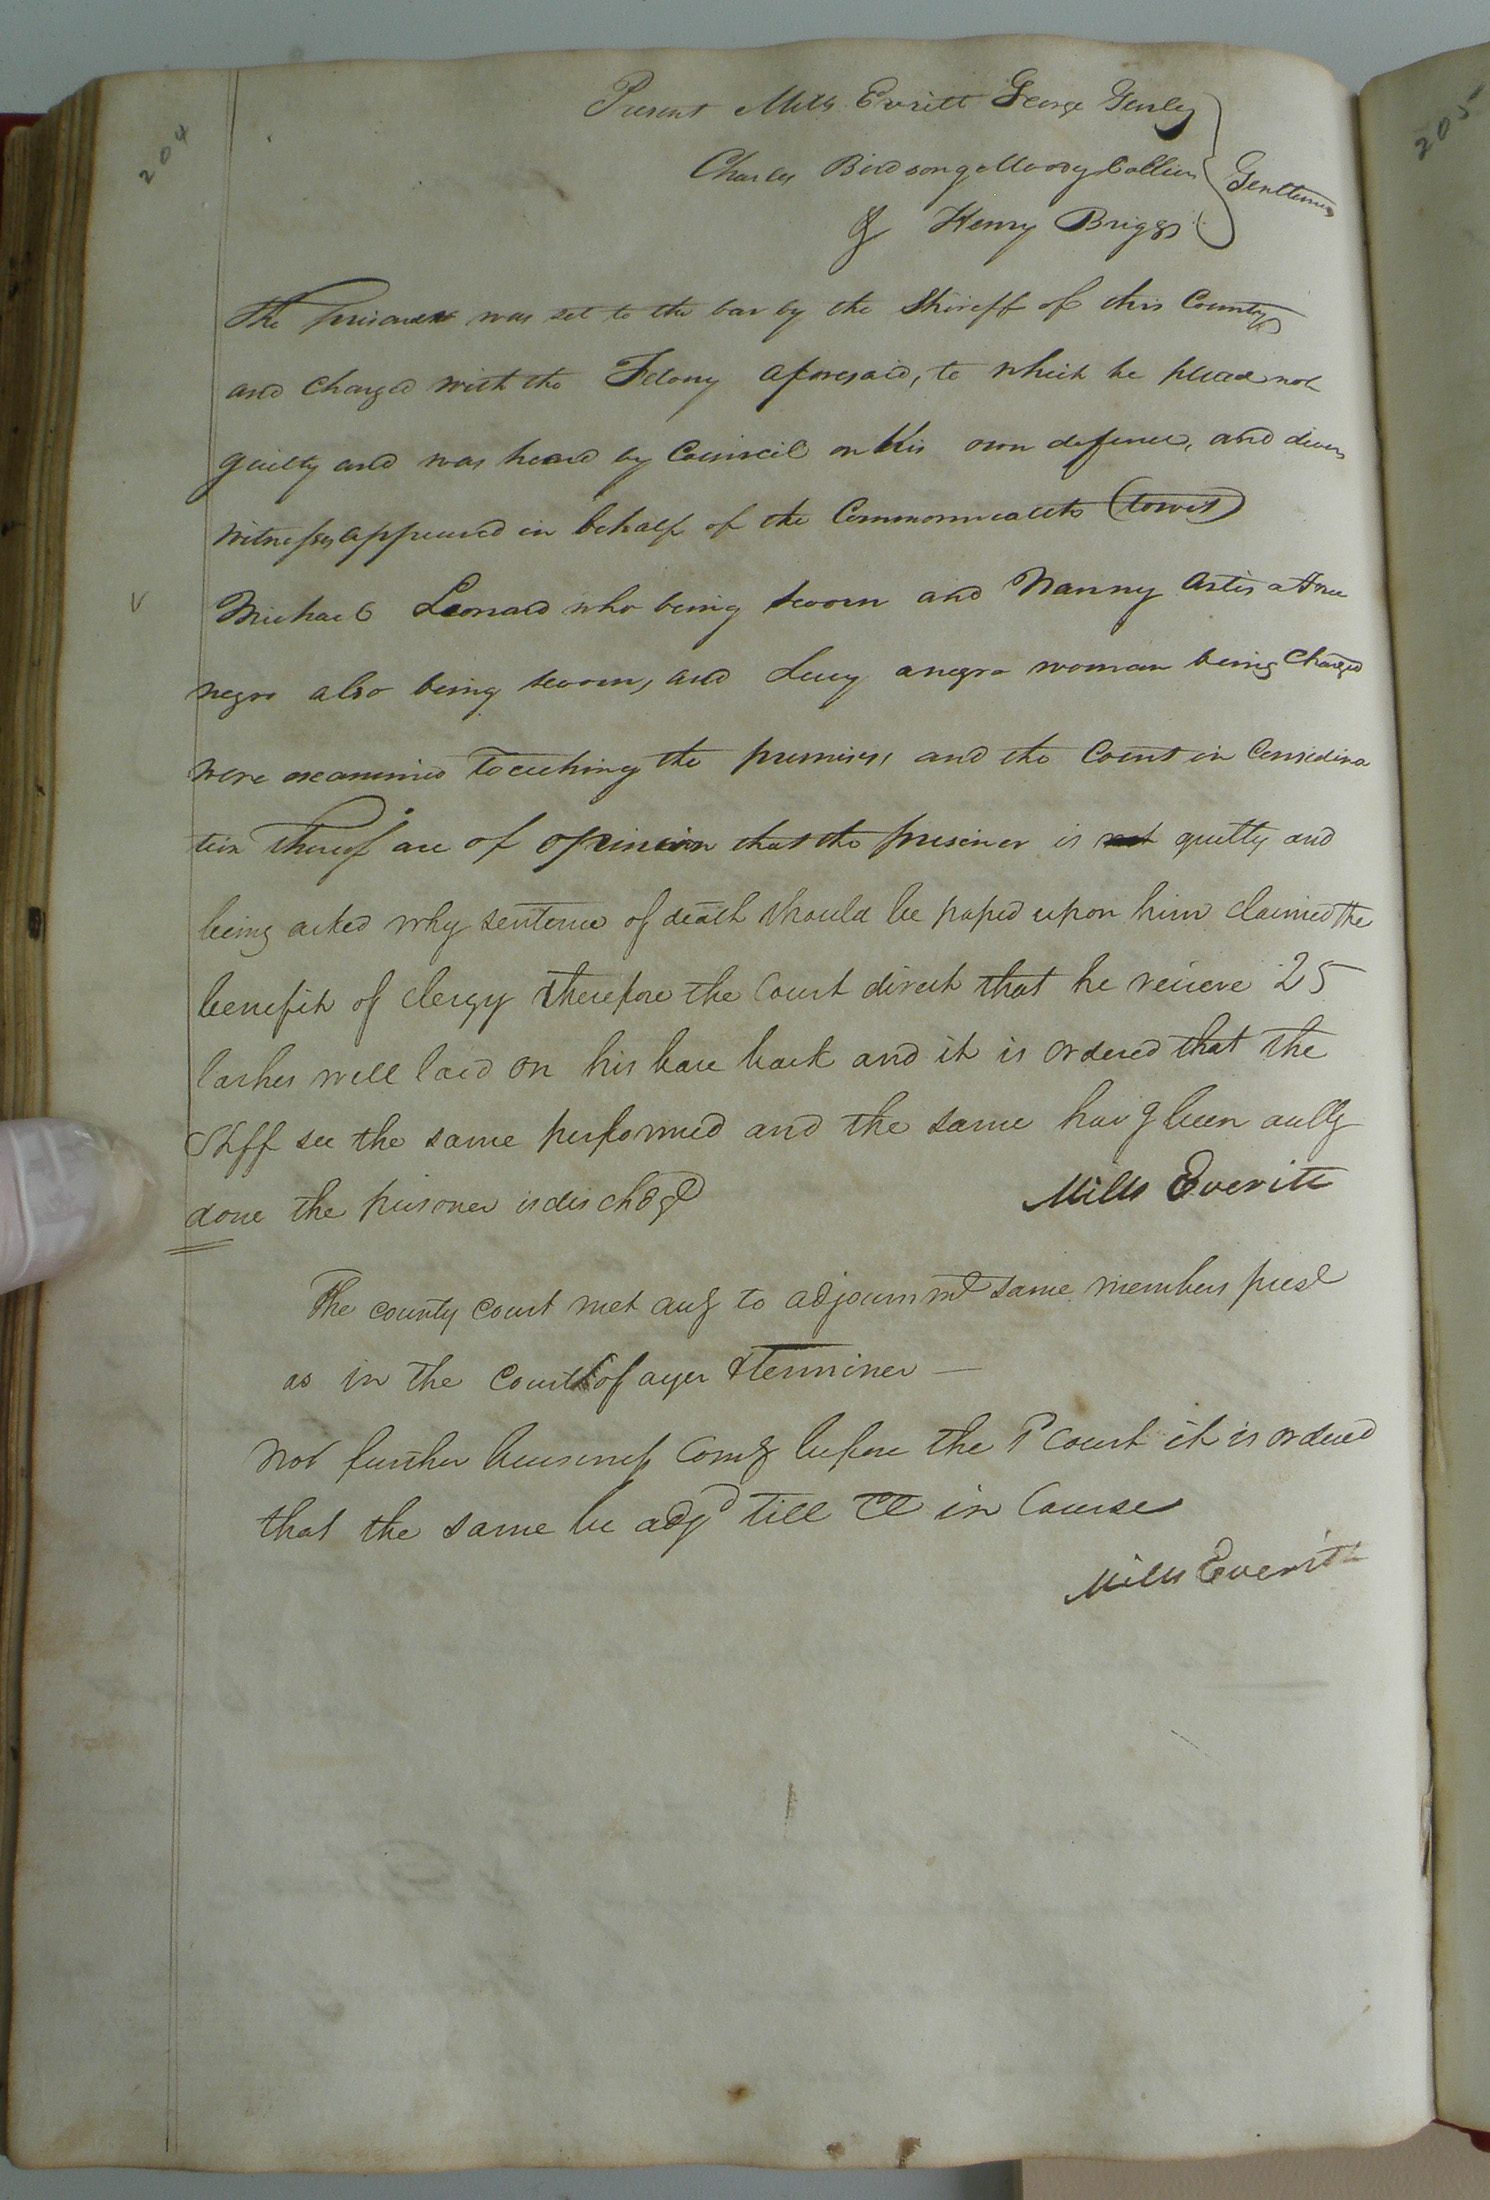 204
205
Present Mills Everitt George Gurley
Charles Birdsong Moody Collier } Gentlemen
& Henry Briggs
The prisoner was set to the bar by the Shireff of this County
and charged with the Felony aforesaid, to which he plead not
guilty and was heard by Council on his own defence, and divers
witnesses appeared in behalf of the Commonwealth (towit)
Michael Leonard who being sworn and Nanny Artis a Free
negro also being sworn, and Lucy a negro woman being charged
were examined Touching the premises, and the Court in Considera
tion Thereof are of opinion that the prisoner is not guilty and
being asked why sentence of death should be passed upon him claimed the
benefit of clergy Therefore the Court direct that he recieve 25
lashes well laid on his bare back and it is ordered that the
Shff see the same performed and the same havg been aully
done the prisoner is dischgd
Mills Everitt
The county court met aug to adjournmt same members prest
as in the Court of ayer & Terminer —
Not further business comg before the Court it is ordered
that the same be adjd till Ct in Course
Mills Everitt